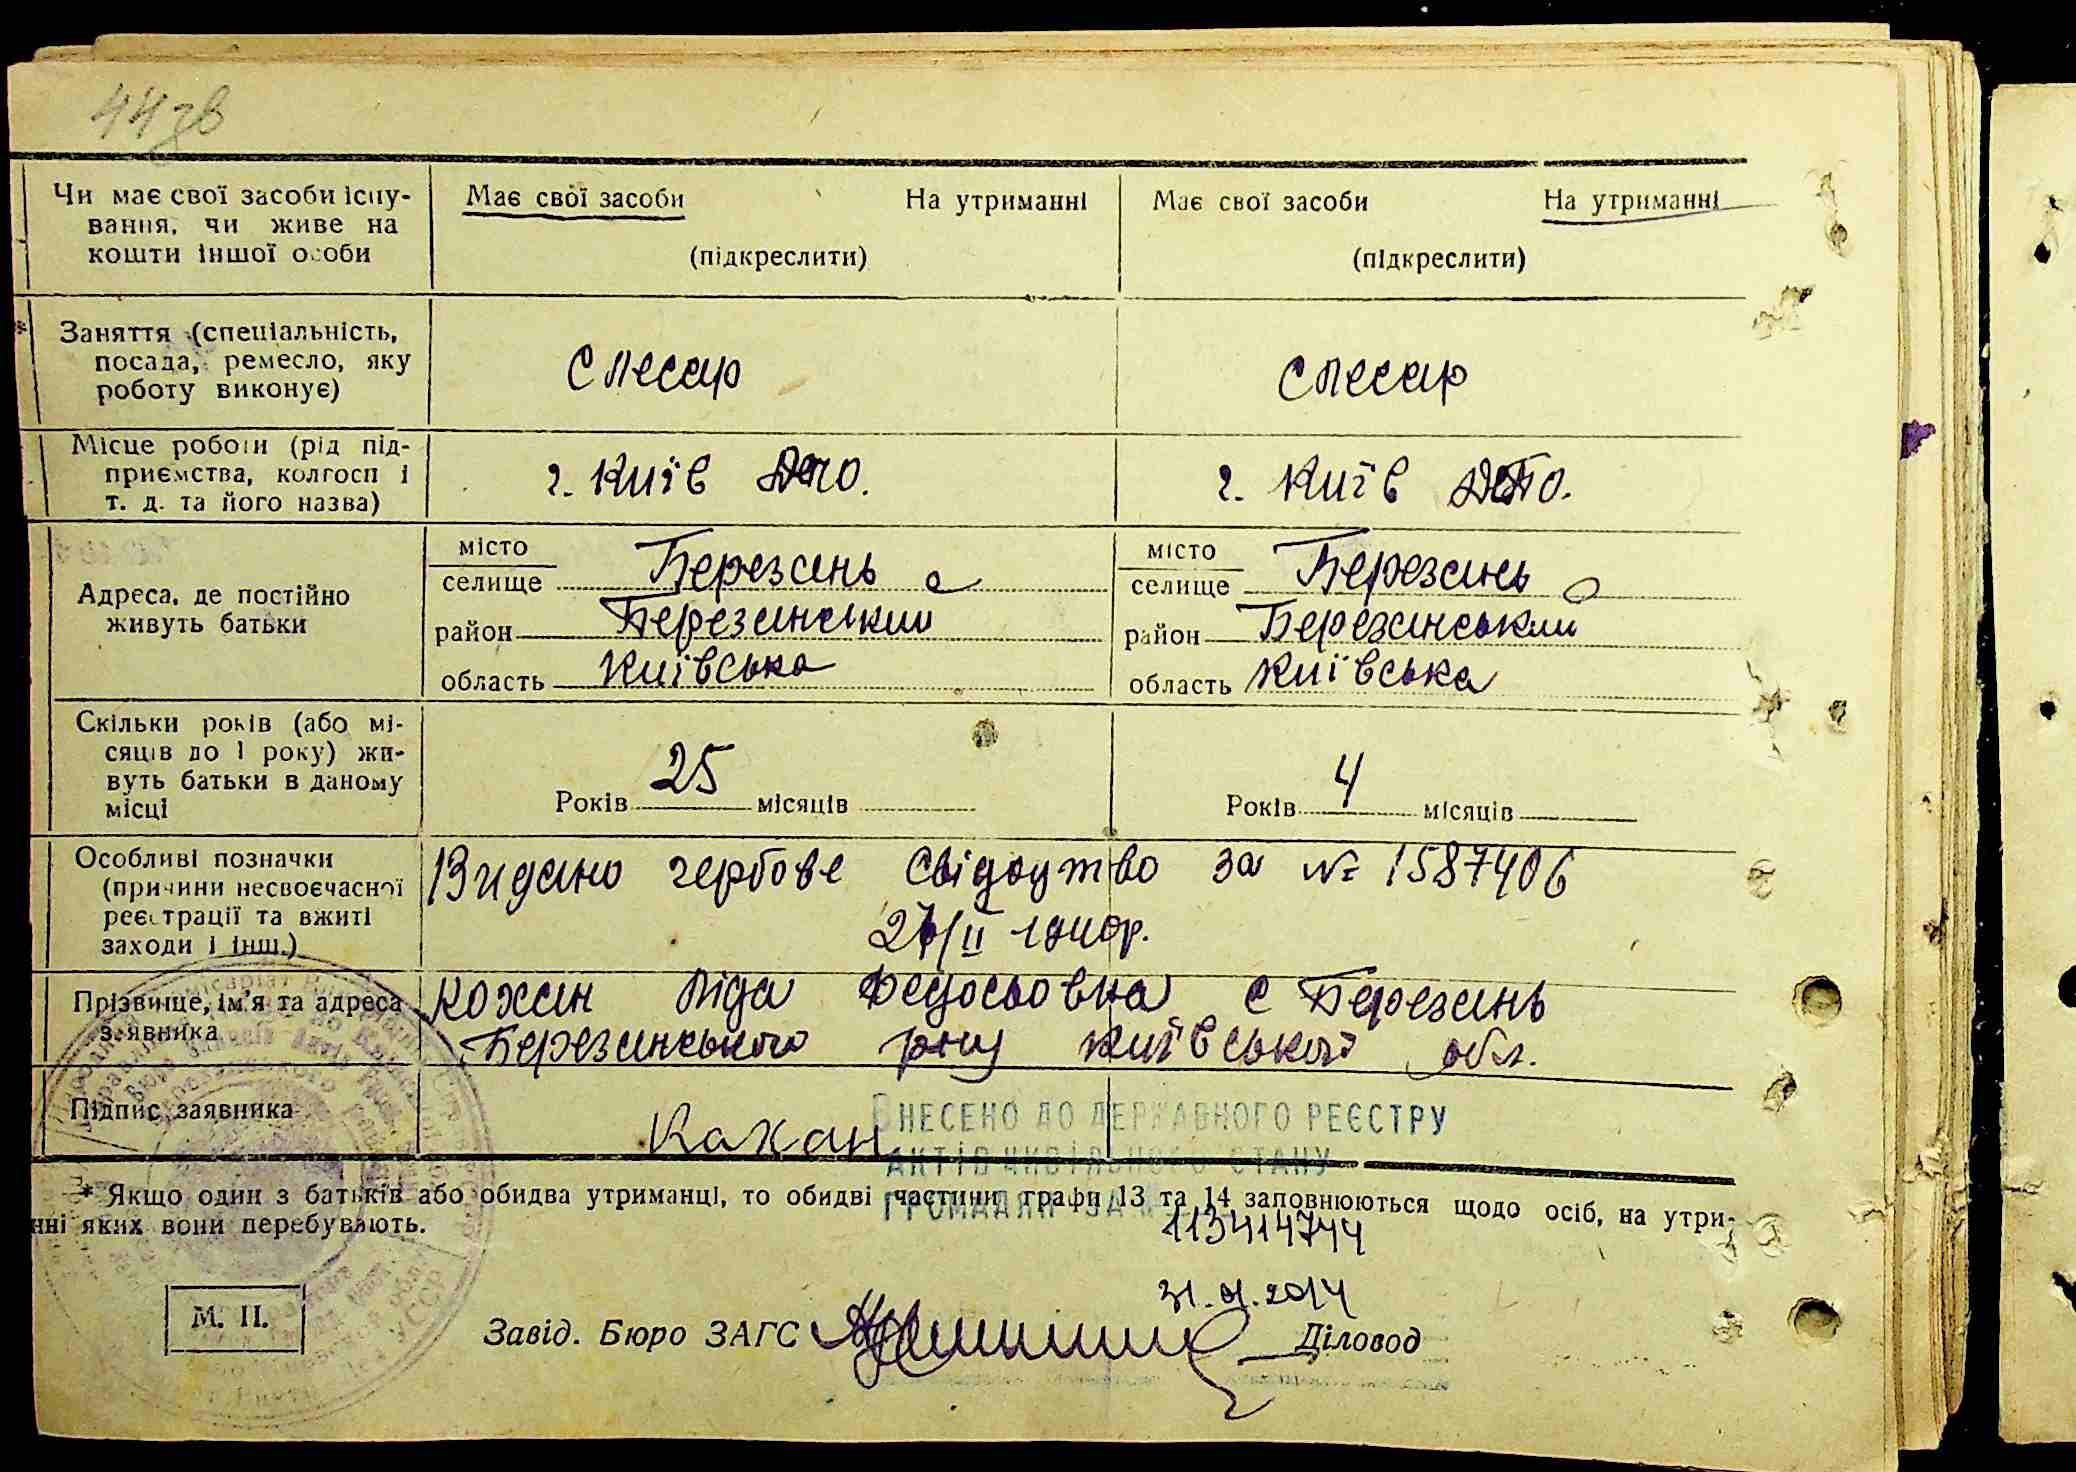 44зв
Чи має свої засоби існу-
вання, чи живе на
кошти іншої особи
Має свої засоби На утриманні
(підкреслити)
Має свої засоби На утриманні
(підкреслити)
Заняття (спеціальність,
посада, ремесло, яку
роботу виконує)
Слесар
Слесар
Місце роботи (рід під-
приємства, колгосп і
т. д. та його назва)
г. Київ Депо.
г. Київ Депо.
Адреса, де постійно
живуть батьки
місто
селище Березань
район Березанський
область Київська
місто
селище Березань
район Березанський
область Київська
Скільки років (або мі-
сяців до 1 року) жи-
вуть батьки в даному
місці
Років 25 місяців
Років 4 місяців
Особливі позначки
(причини несвоєчасної
реєстрації та вжиті
заходи і інш.)
Видано гербове свідоцтво за № 1587406
/II 1940р.
Прізвище, ім'я та адреса
заявника
Кохан Ліда Федосьовна с Березань
Березанського р-ну Київської обл.
Підпис заявника
Кахан
ВНЕСЕНО ДО ДЕРЖАВНОГО РЕЄСТРУ
АКТІВ ЦИВІЛЬНОГО СТАНУ
ГРОМАДЯН ЗА №
113414744
* Якщо один з батьків або обидва утриманці, то обидві частини графи 13 та 14 заповнюються щодо осіб, на утри-
нні яких вони перебувають.
31.01.2014
М. П.
Завід. Бюро ЗАГС Діловод
УССР